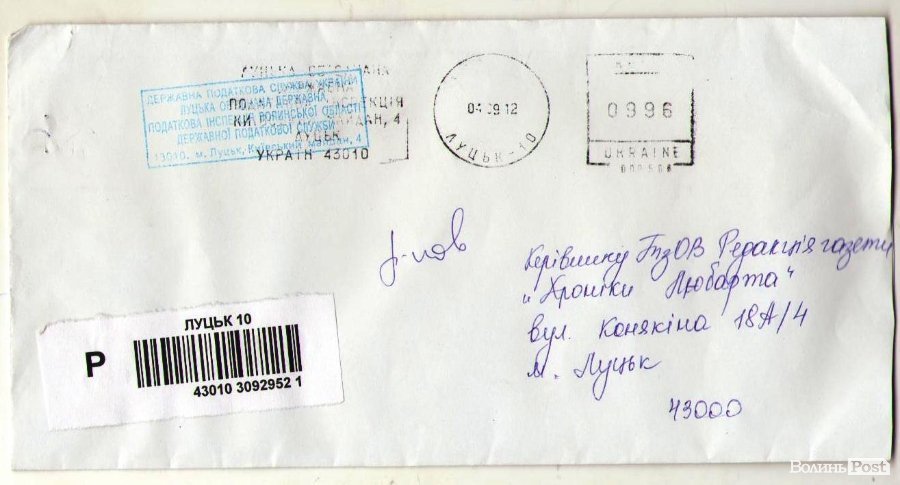 ДЕРЖАВНА ПОДАТКОВА СЛУЖБА УКРАЇНИ
ЛУЦЬКА ДЕРЖАВНА
ПОДАТКОВА ІНСПЕКЦІЯ ВОЛИНСЬКОЇ ОБЛАСТІ
ДЕРЖАВНОЇ ПОДАТКОВОЇ СЛУЖБИ
43010, м. Луцьк, Київський майдан, 4
ЛУЦЬК
УКРАЇН 43010
04 09 12
ЛУЦЬК-10
0996
UKRAINE
р-нов
Керівнику ТзОВ Редакція газети
„Хроніки Любарта"
вул. Конякіна 18А/4
м. Луцьк
43000
ЛУЦЬК 10
Р
43010 3092952 1
ВолиньPost